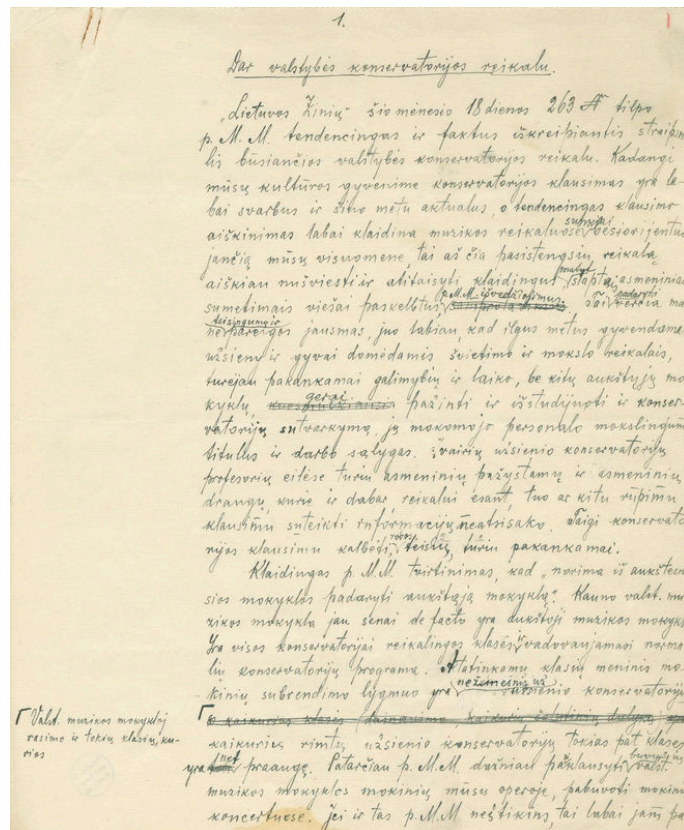 1.
Dar valstybės konservatorijos reikalu.
„Lietuvos Žinių" šio mėnesio 18 dienos 263 № tilpo
p. M. M. tendencingas ir faktus iškreipiantis straips
lis būsiančios valstybės konservatorijos reikalu. Kadangi
mūsų kultūros gyvenime konservatorijos klausimas yra la-
bai svarbus ir šiuo metu aktualus, o tendencingas klausimo
aiškinimas labai klaidina muzikos reikaluose sunkiai besiorijentuo
jančią mūsų visuomenę, tai aš čia pasistengsiu reikalą
aiškiau nušviesti ir atitaisyti klaidingus matyt slaptais asmeniniais
sumetimais viešai paskelbtus p. M. M. išvedžiojimus. Tai padaryti verčia ma
ne teisingumo ir pareigos jausmas, juo labiau, kad ilgus metus gyvendamas
užsieny ir gyvai domėdamis švietimo ir mokslo reikalais,
turėjau pakankamai galimybių ir laiko, be kitų aukštųjų mo
kyklų, gerai pažinti ir išstudijuoti ir konser-
vatorijų sutvarkymą, jų mokomojo personalo mokslingumo
titulus ir darbo sąlygas. Įvairių užsienio konservatorijų
profesorių eilėse turiu asmeninių pažystamų ir asmeninių
draugų, kurie ir dabar reikalui esant, tuo ar kitu rūpimu
klausimu suteikti informacijų neatsisako. Taigi konservato
rijos klausimu kalbėti, teisių turiu pakankamai.
Klaidingas p. M. M. tvirtinimas, kad „norima iš aukštesn
sios mokyklos padaryti aukštąją mokyklą". Kauno valst. mu
zikos mokykla jau senai de facto yra aukštoji muzikos mokykl
Yra visos konservatorijai reikalingos klasės, vadovaujamasi norma
lių konservatorijų programa. Atatinkamų klasių meninis mo-
kinių subrendimo lygmuo yra nežemesnis už užsienio konservatorijų
Valst. muzikos mokykloj
rasime ir tokių klasių, ku-
rios
kaikurių rimtų užsienio konservatorijų tokias pat klases
yra net praaugę. Patarčiau p. M. M. dažniau paklausyti buvusių valst.
muzikos mokyklos mokinių mūsų operoje, pabuvoti mokinių
koncertuose. Jei ir tas p. M. M. neįtikins, tai labai jam pa